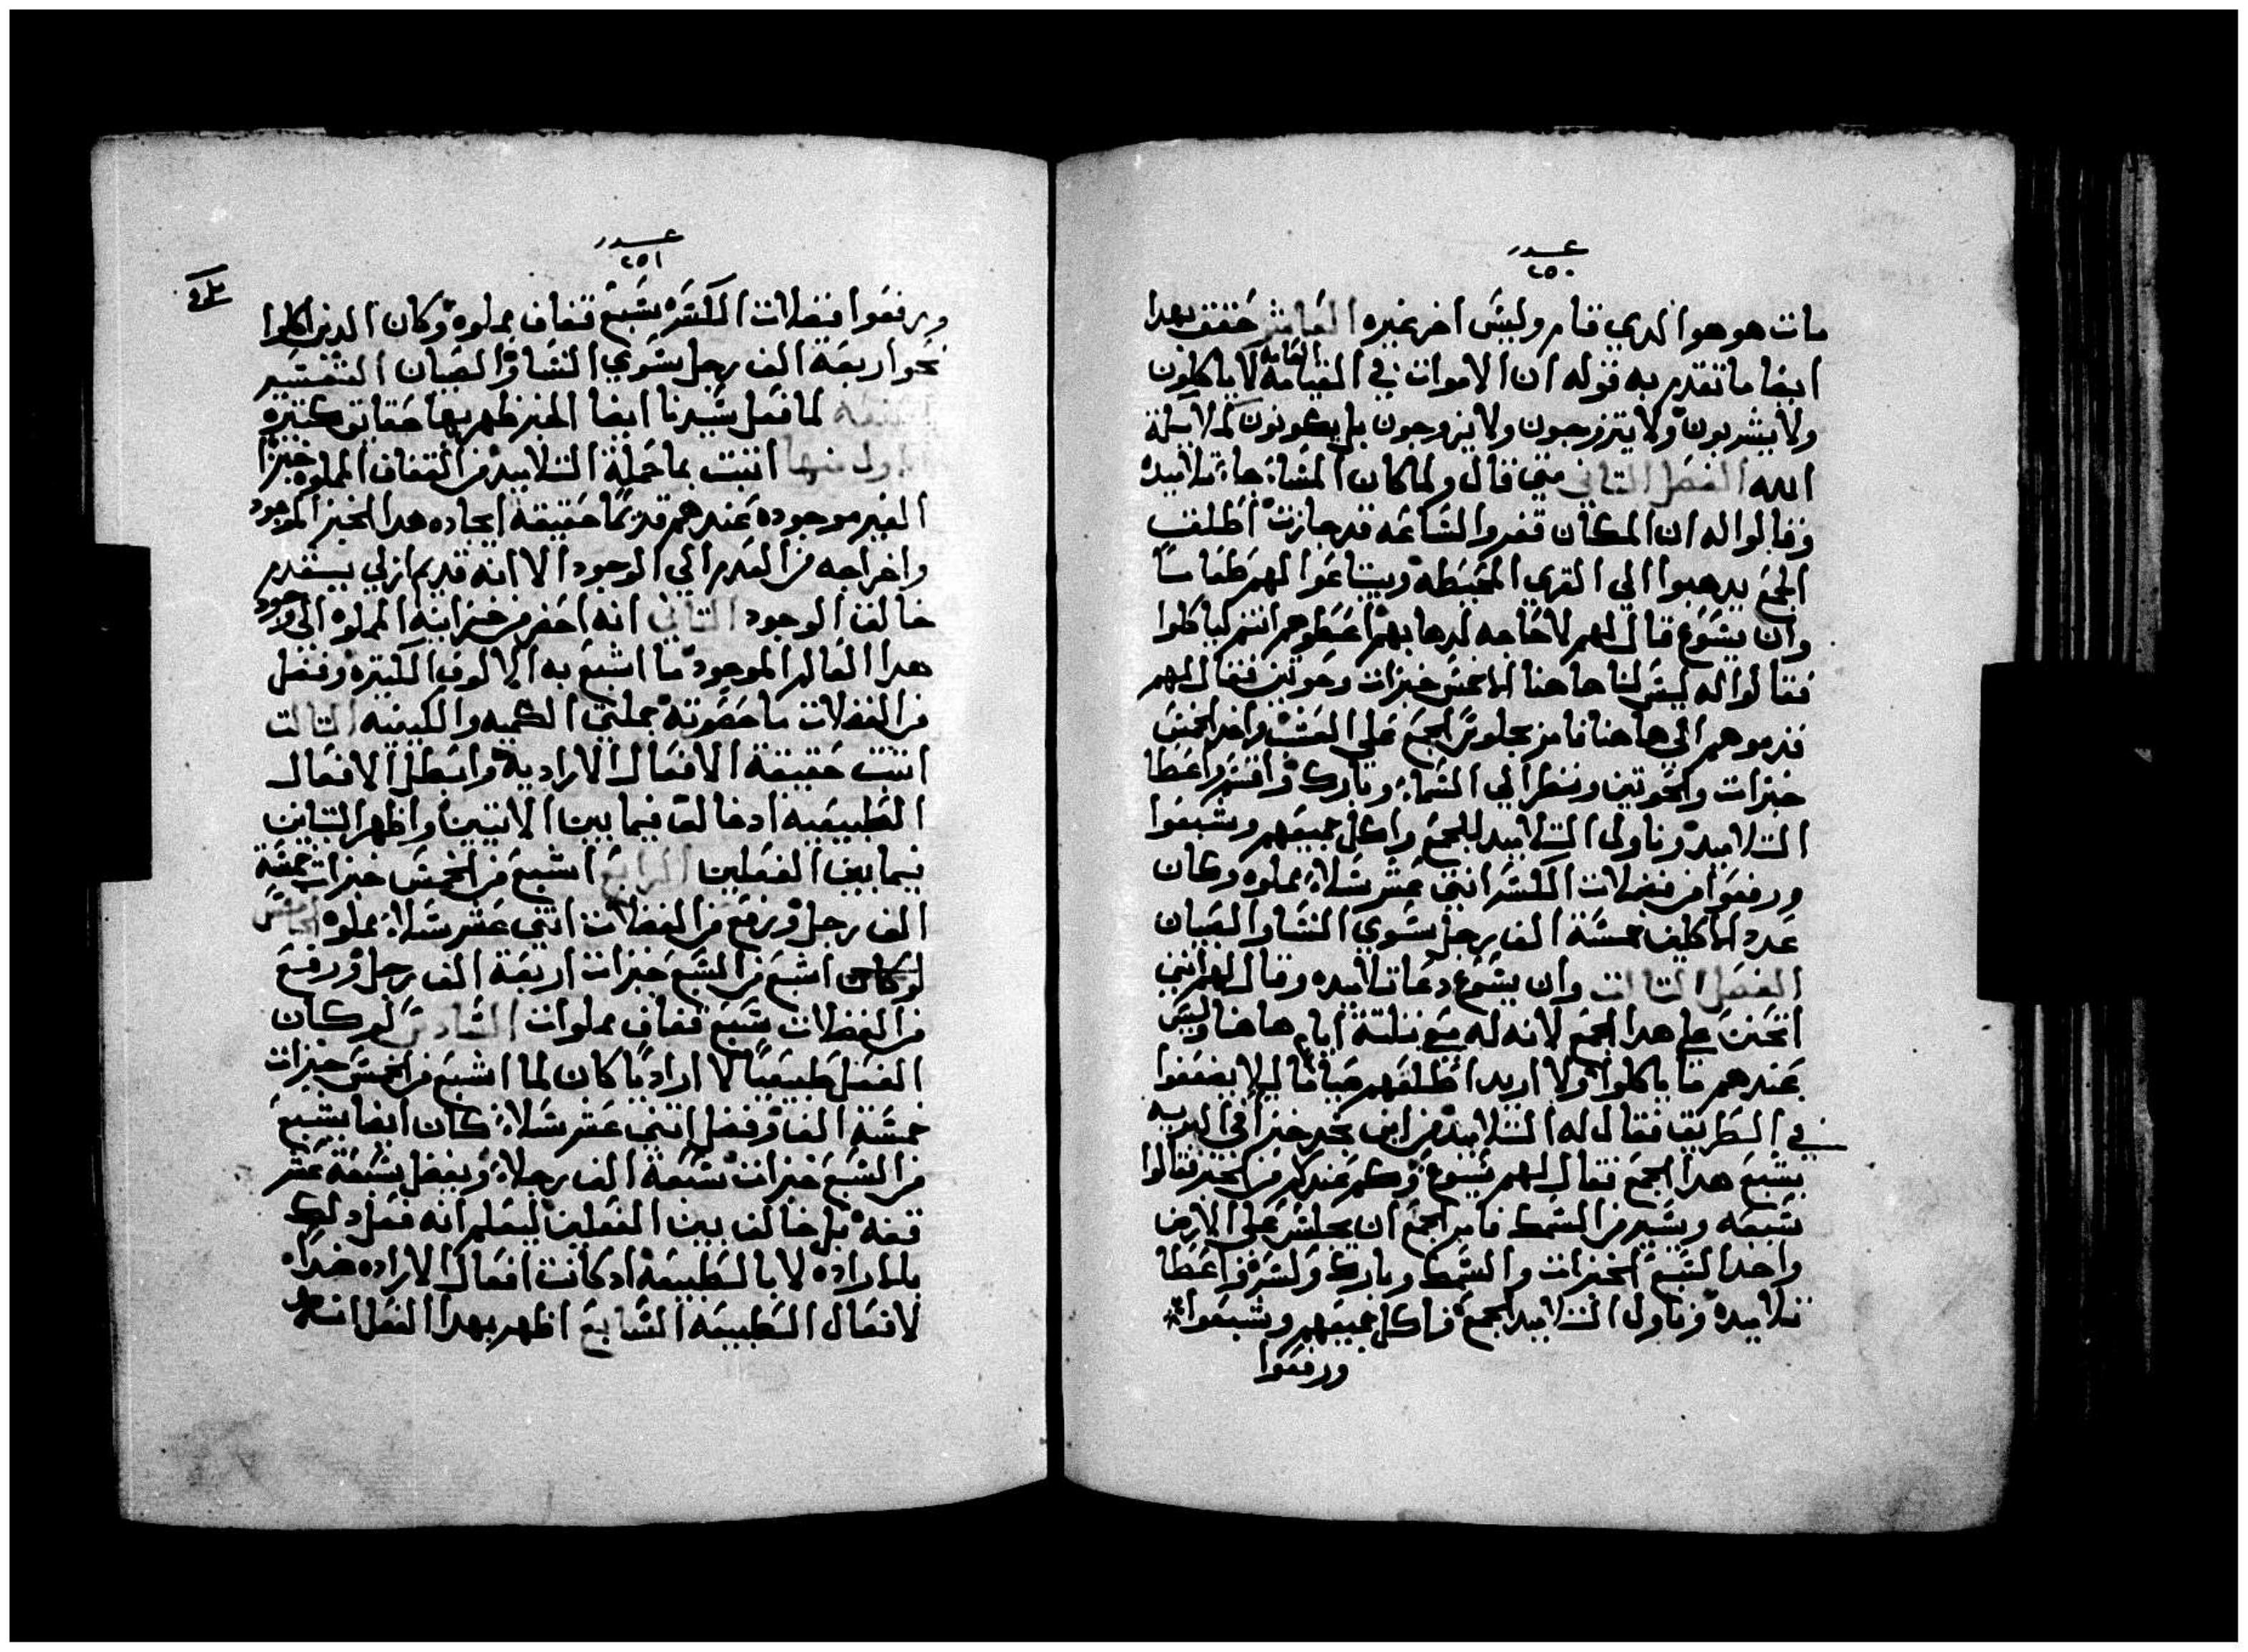 عدد
٢٥٠
مات هو هوا لدي قام وليس اخر غيره العاشر حقق بهدا
ايضا ما تقدم به قوله ان الاموات في القيامه العامه لا ياكلون
ولا يشربون ولا يتزوجون ولا يزوجون بل يكونون كملايكة
الله الفصل التاني متي قال ولما كان المسا جاء تلاميده
وقالوا له ان المكان قفر والساعه قد جازت اطلق
الجمع يدهبوا الي القري المحيطه ويبتاعوا لهم طعاما
وان يسوع قال لهم لا حاجه لدهابهم اعطوهم انتم لياكلوا
فقالوا له ليس لنا هاهنا الا خمس خبزات وحوتين فقال لهم
قدموهم الي هاهنا فامر بجلوس الجمع علي العشب واخد الخمس
خبزات والحوتين ونظر الي السماء وبارك وقسم واعطا
التلاميد وناولن التلاميد للجمع واكل جميعهم وشبعوا
ورفعوا من فضلات الكسر اتني عشر سلاء مملوه وكان
عدد الاكلين خمسة الف رجل سوي النسا والصبيان
الفصل التالت وان يسوع دعا تلاميده وقال لهم انني
اتحنن علي هدا الجمع لانه له معي تلتة ايام هاهنا وليس
عندهم ما ياكلوا ولا اريد اطلقهم صياما ليلا يضعفوا
في الطريق فقال له التلاميد من اين نجد خبزا في البريه
يشبع هدا الجمع فقال لهم يسوع وكم عندكم من الخبز فقالوا
سبعه ويسير من السمك فامر الجمع ان يجلس علي الارض
واخد السبع الخبزات والسمك وبارك وكسر واعطا
تلاميده وناول التلاميد الجمع فاكل جميعهم وشبعوا
ورفعوا
عدد
٢٥١
ورفعوا فضلات الكسر سبع قفاف مملوه وكان الدين اكلوا
نحو اربعة الف رجل سوي النسا والصبيان التفسير
لما فعل سيدنا ايضا ظهر بها حقايق كتيره
الاول منها اتبت بما حمله التلاميد من القفاف المملوه خبزا
الغير موجوده عندهم قديما حقيقة ايجاده هدا الخبز الموجود
واخراجه من العدم الي الوجود الا انه قديم ازلي يستقدم
خالق الوجود التاني انه احضر من خزانته المملوه الي وجود
هدا العالم الموجود ما اشبع به الالوف الكتيره وفضل
من الفضلات ما حصرته جملتي الكميه والكيفيه التالت
اتبت حقيقة الافعال الاراديه وابطل الافعال
الطبيعيه اد خالف فيما بين الايتين واظهر التباين
فيما بين الفعلين الرابع اشبع من الخمس خبزات خمسة
الف رجل ورفع من الفضلات اتني عشر سلاء مملوه الخامس
اشبع من السبع خبزات اربعة الف رجل ورفع
من الفضلات سبع قفاف مملوات السادس لو كان
الفعل طبيعيا لا اراديا كان لما اشبع من الخمس خبزات
خمسة الف وفضل اتني عشر سلاء كان ايضا يشبع
من السبع خبزات سبعة الف رجلا ويفضل سبعة عشر
قفه بل خالف بين الفعلين ليعلم انه فعل دلك
بالاراده لا بالطبيعه اد كانت افعال الاراده ضدا
لافعال الطبيعه السابع اظهر بهدا الفعل انه